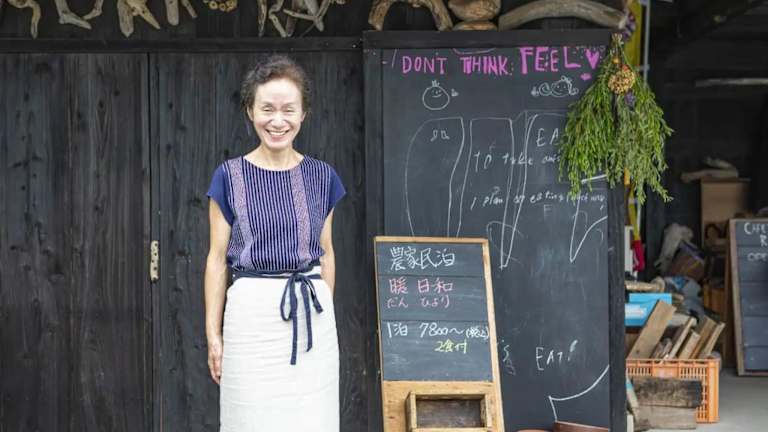 DONT THINK. FEEL
EAT
To take
I plan on eating
農家民泊
暖 日和
だん びより
1泊 7800〜(税込)
2食付
EAT!
CAFE